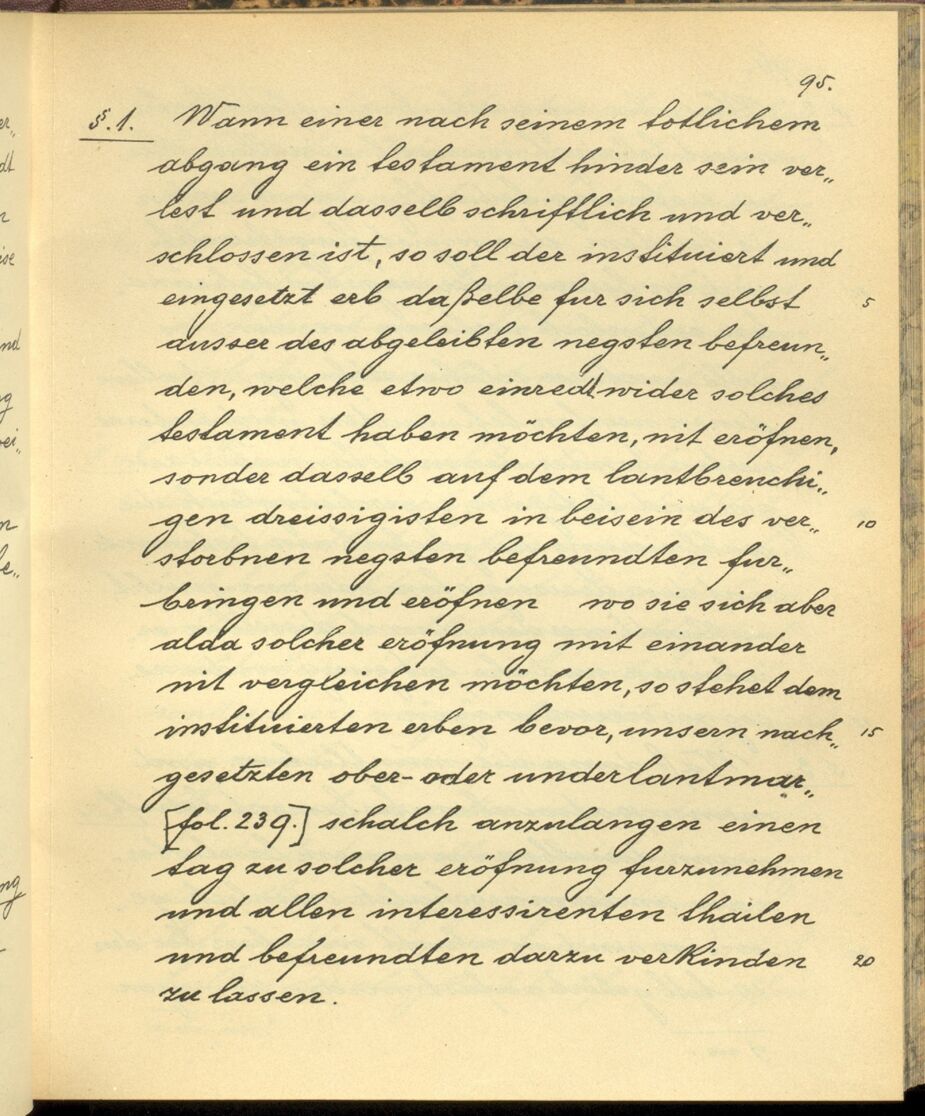 95.
§.1. Wann einer nach seinem totlichem
abgang ein testament hinder sein ver„
lest und dasselb schrifftlich und ver„
schlossen ist, so soll der instituiert und
eingesetzt erb daßelbe fur sich selbst 5
ausser des abgeleibten negsten befreun„
den, welche etwo einredt wider solches
testament haben möchten, nit eröfnen,
sonder dasselb auf dem lantbreuchi„
gen dreissigisten in beisein des ver„ 10
storbnen negsten befreundten fur„
bringen und eröfnen wo sie sich aber
alda solcher eröfnung mit einander
nit vergleichen möchten, so stehet dem
instituierten erben bevor, unsern nach„ 15
gesetzten ober- oder underlantmar„
[fol. 239.] schalch anzulangen einen
tag zu solcher eröfnung furzunehmen
und allen interessirenten thailen
und befreundten darzu verkinden 20
zu lassen.